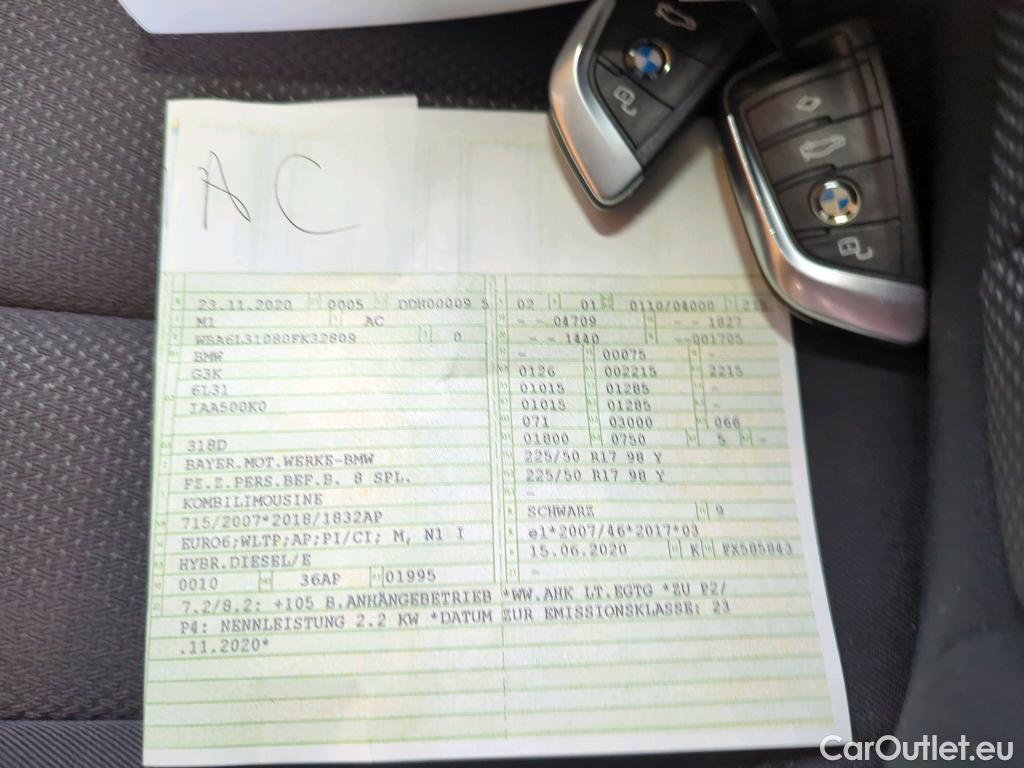 AC
23.11.2020 0005 DDH00009 5 02 01 0110/04000 215
M1 AC - - 04709 - - 1827
WBA6L31080FK32809 0 - - 1440 --001705
BMW - 00075 -
G3K 0126 002215 2215
6L31 01015 01285 -
IAA500K0 01015 01285 -
071 03000 066
318D 01800 0750 5 -
BAYER.MOT.WERKE-BMW 225/50 R17 98 Y
FZ.Z.PERS.BEF.B. 8 SPL. 225/50 R17 98 Y
KOMBILIMOUSINE -
715/2007*2018/1832AP SCHWARZ 9
EURO6;WLTP;AP;PI/CI; M, N1 I e1*2007/46*2017*03
HYBR.DIESEL/E 15.06.2020 K FX505043
0010 36AP 01995 -
7.2/8.2: +105 B.ANHÄNGEBETRIEB *WW.AHK LT.EGTG *ZU P2/
P4: NENNLEISTUNG 2.2 KW *DATUM ZUR EMISSIONSKLASSE: 23
.11.2020*
CarOutlet.eu